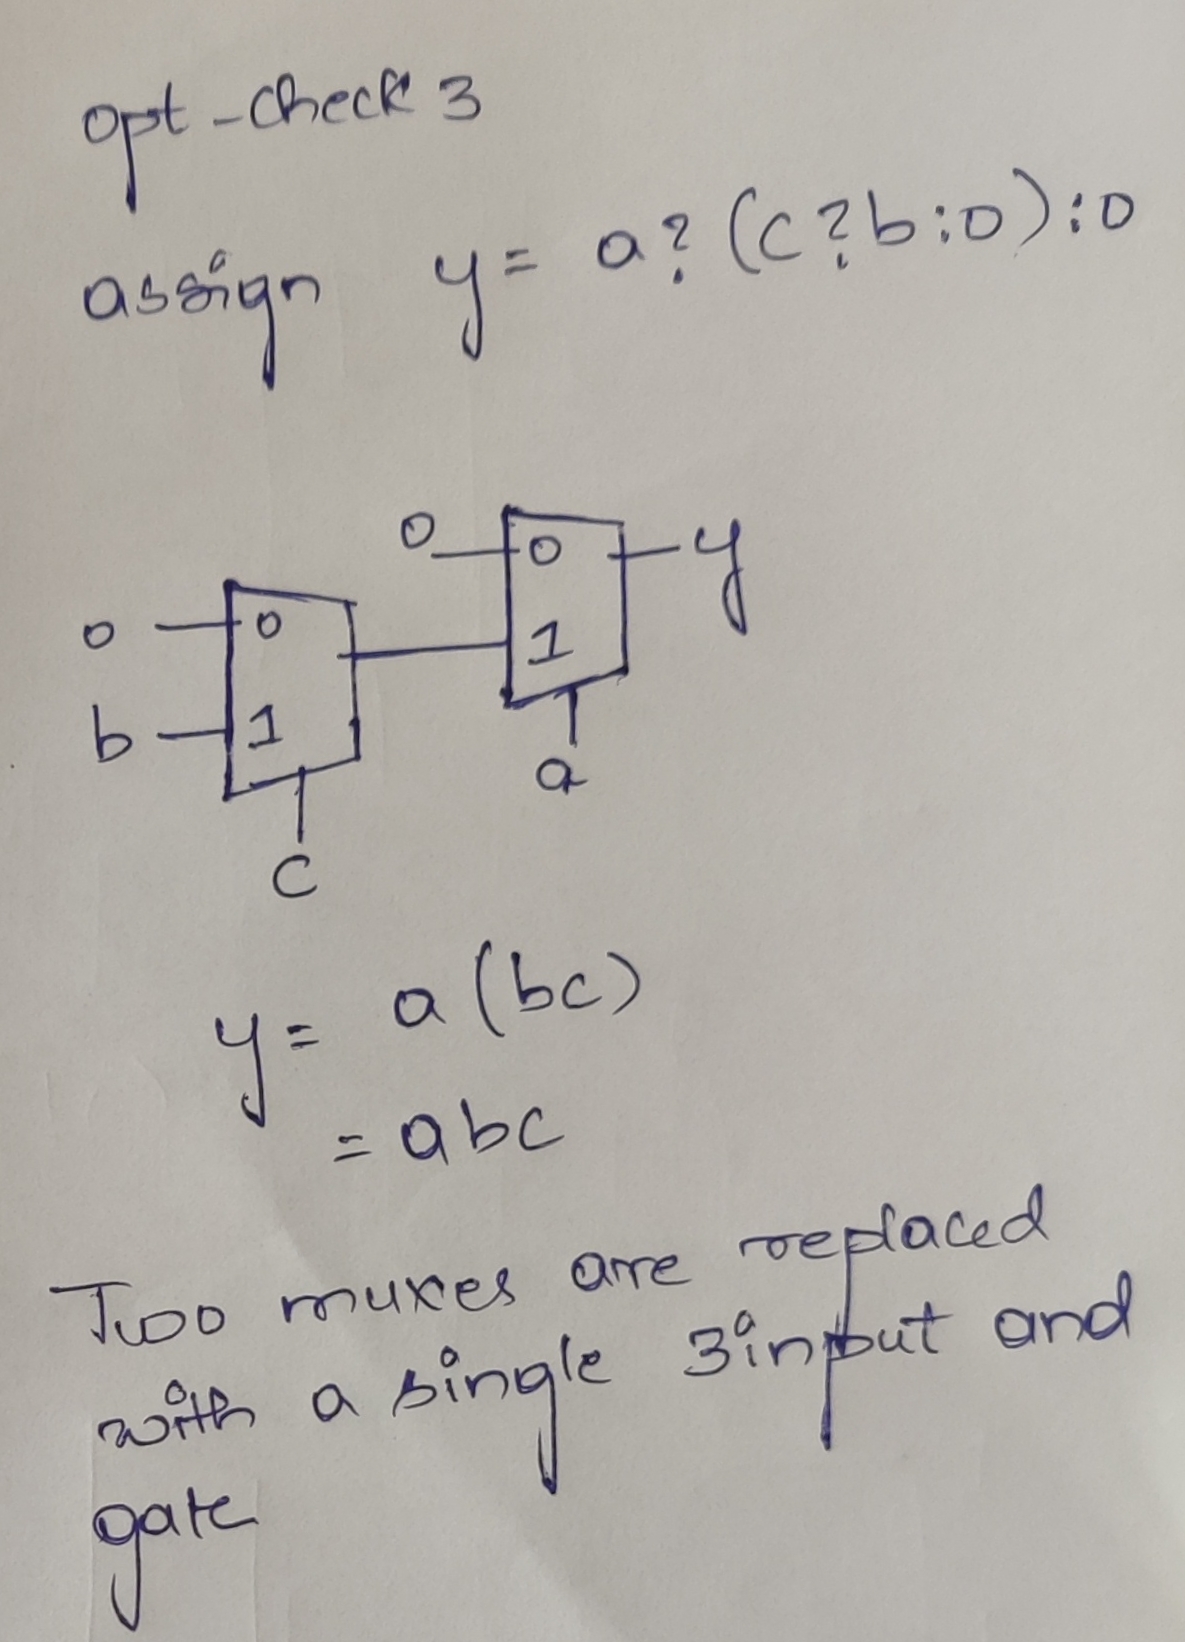 opt-check 3
assign y= a?(c?b:0):0
0 0 y
0 0 1
b 1 a
C
y= a(bc)
= abc
Two muxes are replaced
with a single 3input and
gate